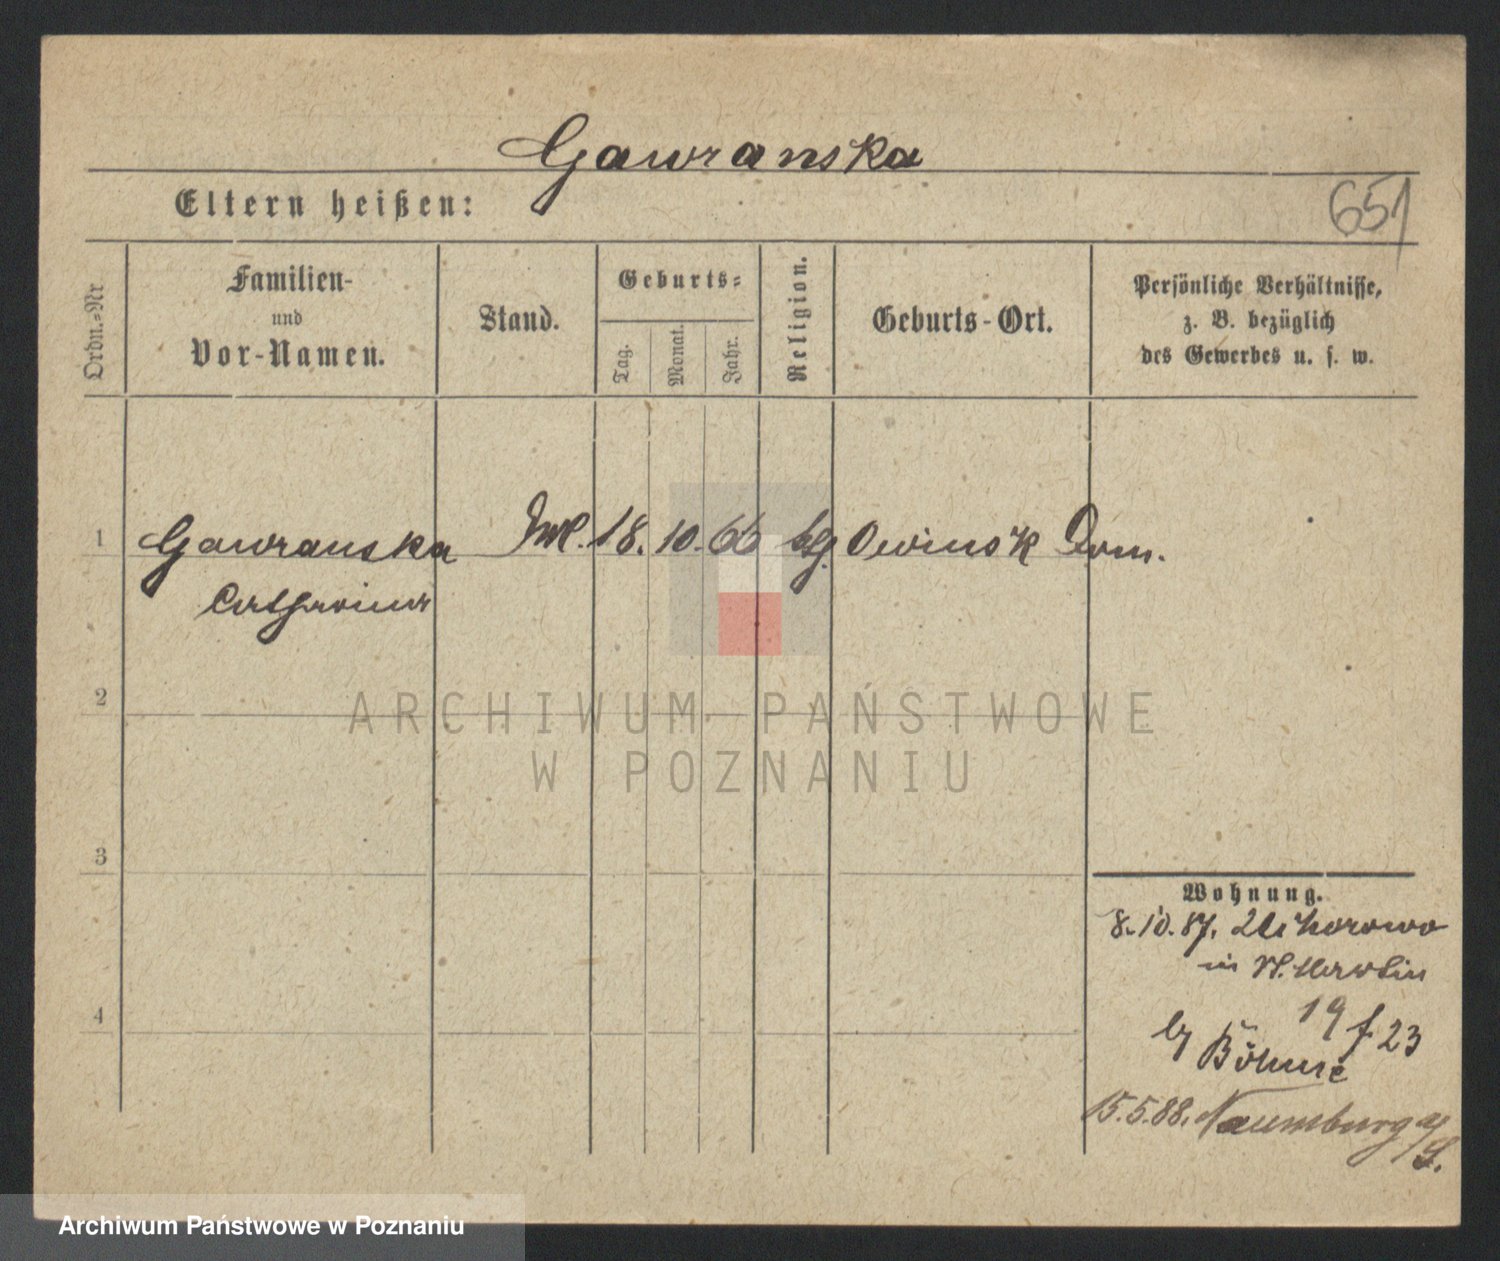 Gawranska
Eltern heißen:
651
Ordn.=Nr
Familien-
und
Vor-Namen.
Stand.
Geburts=
Tag.
Monat.
Jahr.
Religion.
Geburts-Ort.
Persönliche Verhältnisse,
z. B. bezüglich
des Gewerbes u. s. w.
1
Gawranska 18. 10. 66 Owinsk Dom.
Catharina
2
ARCHIWUM PAŃSTWOWE
W POZNANIU
3
Wohnung.
8.10.87.
in
4
19 f 23
Böhme
15.5.88. Naumburg a/S.
Archiwum Państwowe w Poznaniu